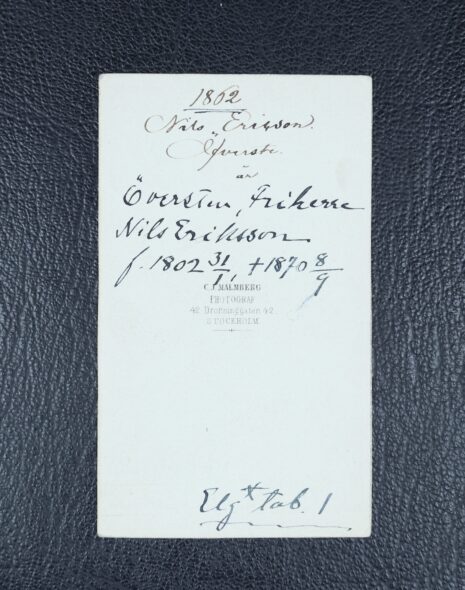 1862
Nils Ericson.
Öfverste.
är
Översten, Friherre
Nils Eriksson
f. 1802 31/1, +1870 8/9
C. J. MALMBERG
PHOTOGRAF
42 Drottninggatan 42
STOCKHOLM.
tab. 1